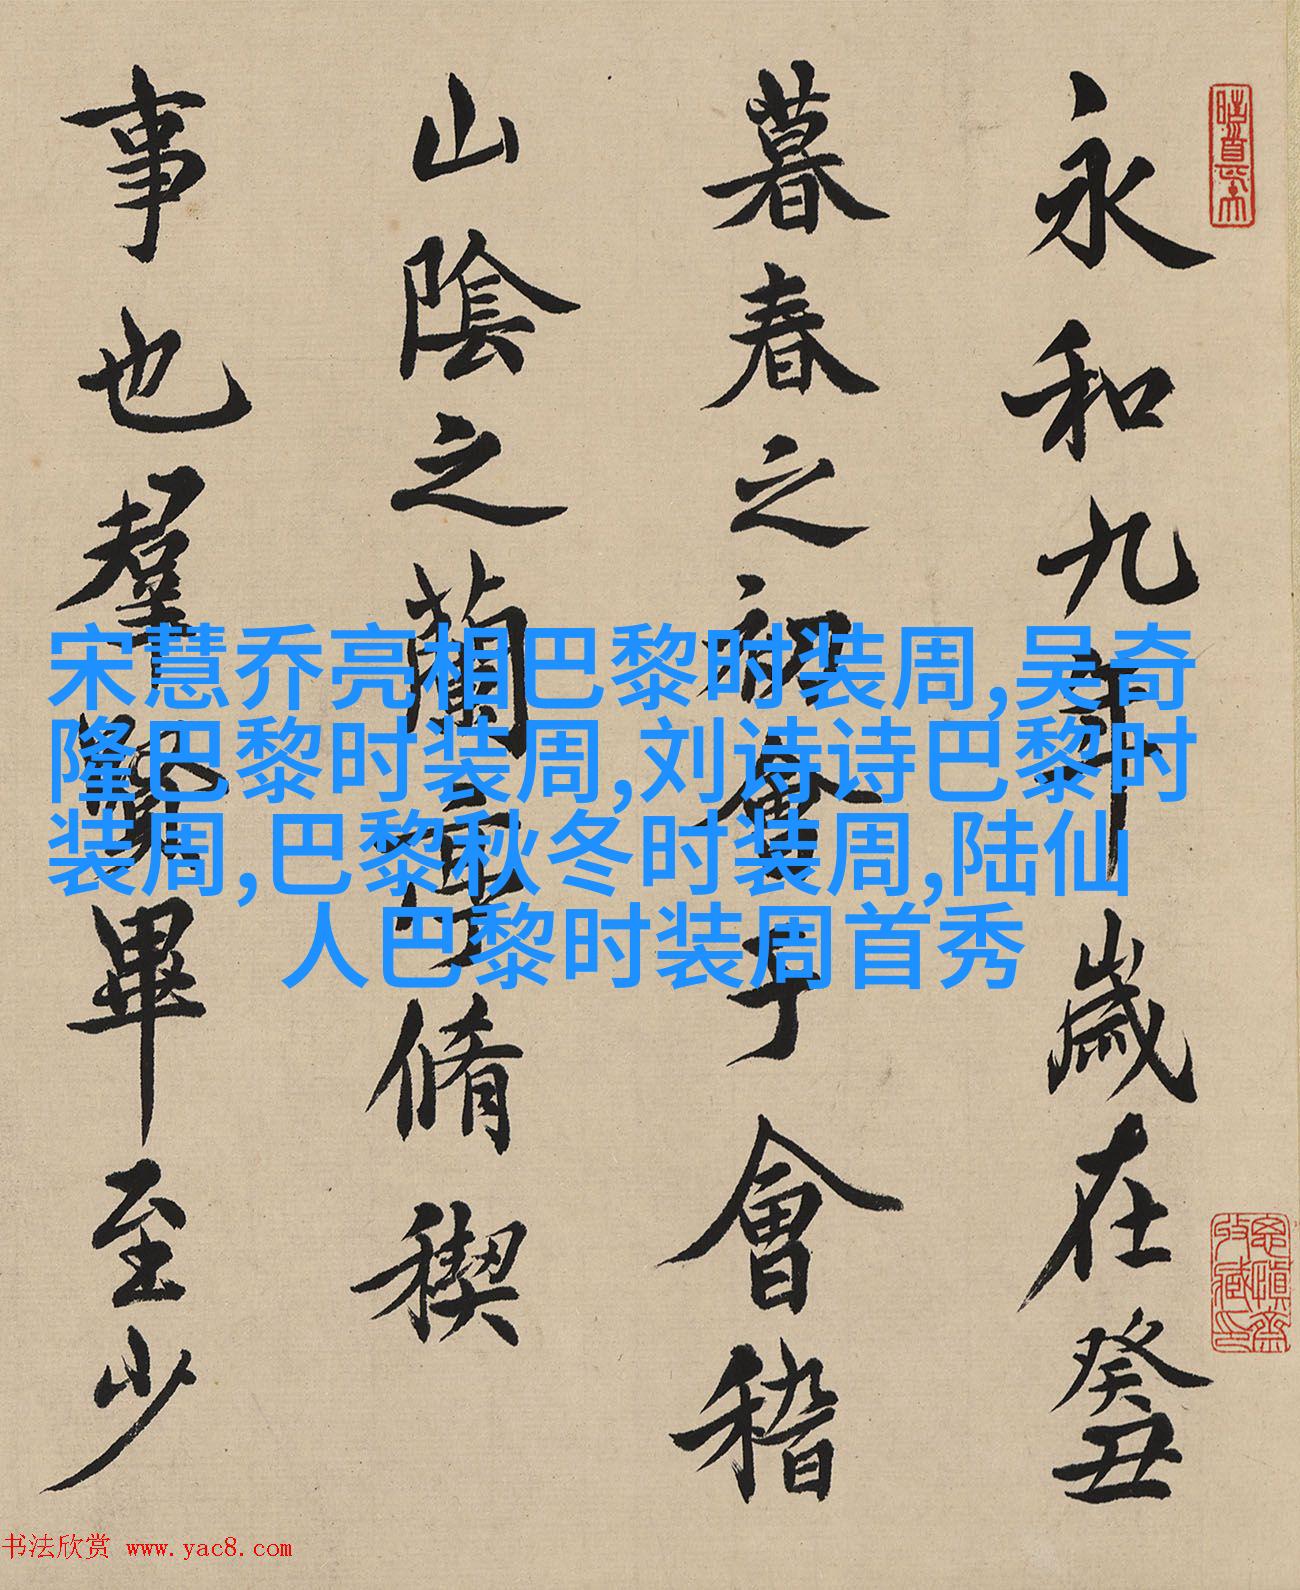 永和九年歲在癸丑
暮春之初會于會稽
山陰之蘭亭脩稧
事也羣賢畢至少
宋慧乔亮相巴黎时装周,吴奇
隆巴黎时装周,刘诗诗巴黎时
装周,巴黎秋冬时装周,陆仙
人巴黎时装周首秀
书法欣赏 www.yac8.com